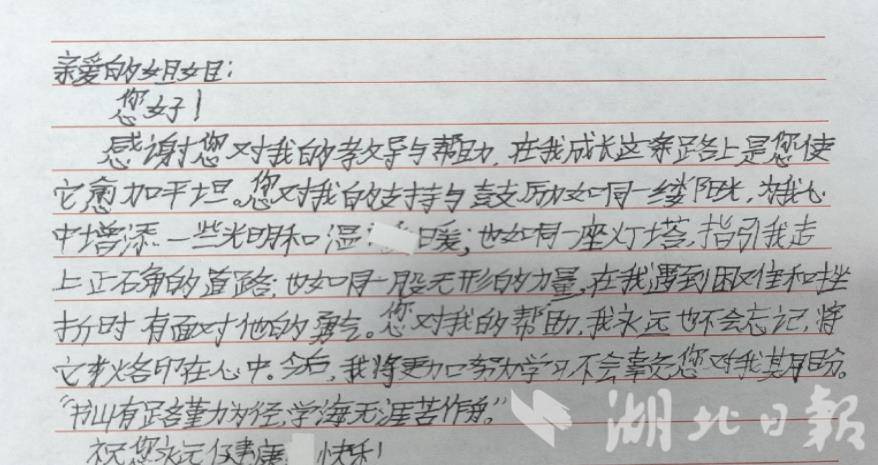 亲爱的姐姐:
您好!
感谢您对我的孝文导与帮助,在我成长这条路上是您使
它愈加平坦。您对我的支持与鼓励如同一缕阳光,为我心
中增添一些光明和温暖;也如同一座灯塔,指引我走
上正确的道路;也如同一股无形的力量,在我遇到困难和挫
折时有面对他的勇气。您对我的帮助,我永远也不会忘记,将
它烙印在心中。今后,我将更加努力学习不会辜负您对我其期盼。
“书山有路勤力为径,学海无涯苦作舟。”
祝您永远健康 快乐!
湖北日報